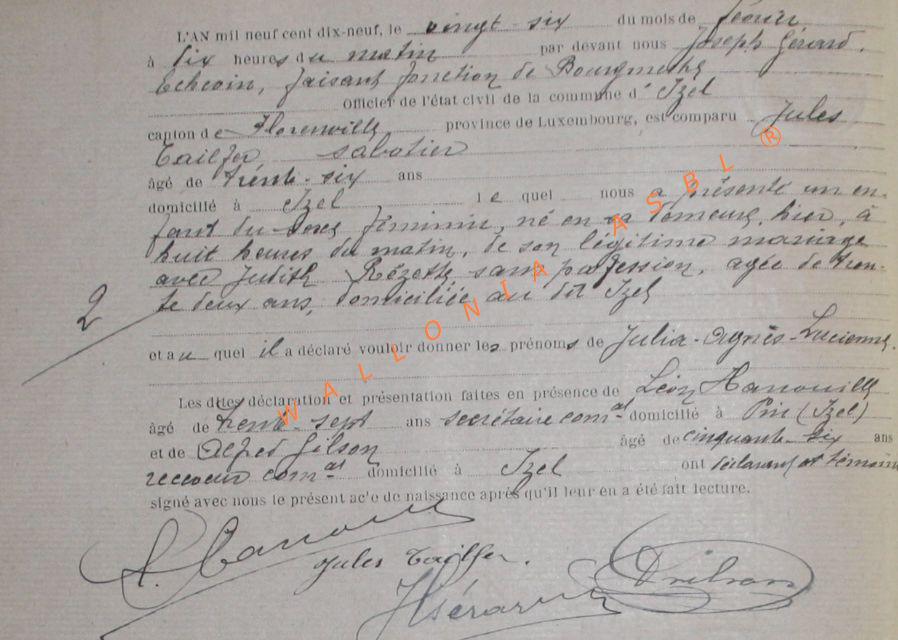 L'AN mil neuf cent dix-neuf, le vingt-six du mois de février
à dix heures du matin par devant nous Joseph Gérard,
Echevin, faisant fonction de Bourgmestre
Officier de l'état civil de la commune d' Izel
canton de Florenville province de Luxembourg, est comparu Jules
Tailfer sabotier
âgé de trente-six ans
domicilié à Izel le quel nous a présenté un en-
fant du sexe féminin, né en sa demeure, hier, à
huit heures du matin, de son légitime mariage
avec Judith Rézette sans profession, agée de tren-
te deux ans, domiciliée au dit Izel
2
et au quel il a déclaré vouloir donner les prénoms de Julia-Agnès-Lucienne.
Les dites déclaration et présentation faites en présence de Léon Hanouille
âgé de trente-sept ans secrétaire comal domicilié à Pin (Izel)
et de Alfred Gilson âgé de cinquante-six ans
receveur comal domicilié à Izel ont déclarant et témoins
signé avec nous le présent acte de naissance après qu'il leur en a été fait lecture.
L. Hanouille
Jules Tailfer.
J Gérard
WALLONIA ASBL ®